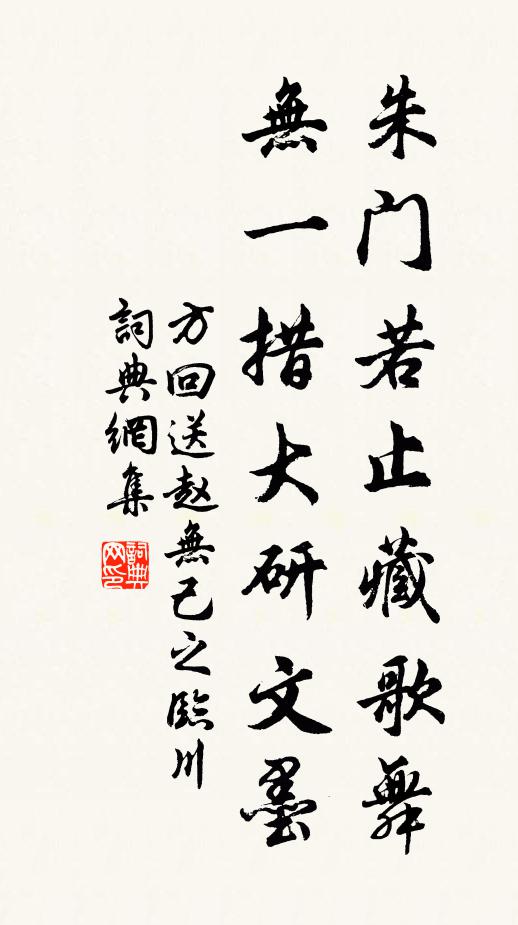 朱门若止藏歌舞
無一措大研文墨
方回送赵無己之臨川
詞典網集
詞典网印